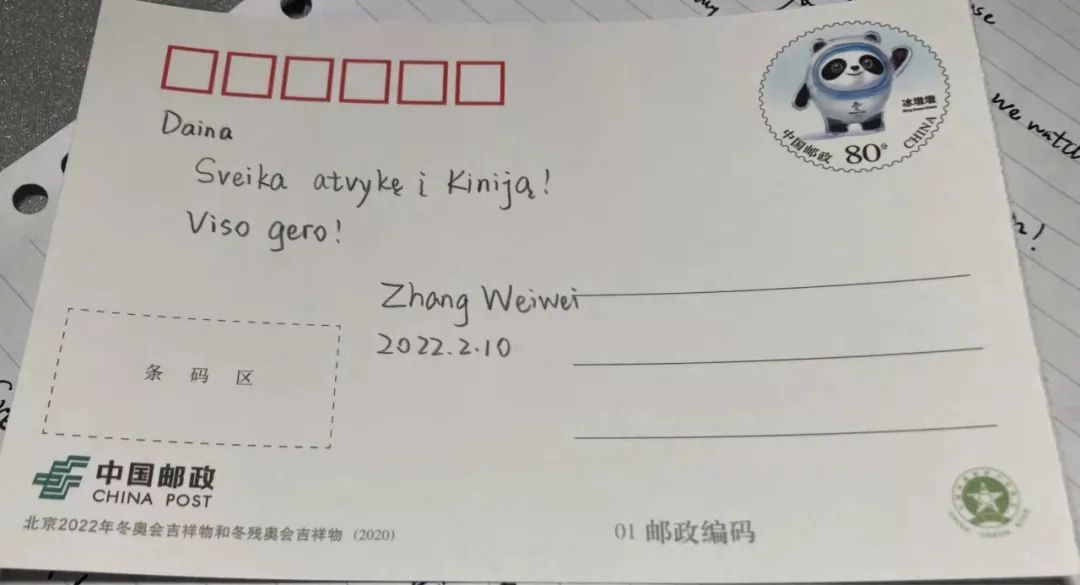 Daina
Sveika atvykę i Kiniją!
Viso gero!
Zhang Weiwei
2022.2.10
冰墩墩
中国邮政 80分 CHINA
条码区
中国邮政
CHINA POST
北京2022年冬奥会吉祥物和冬残奥会吉祥物 (2020)
01 邮政编码
we watch